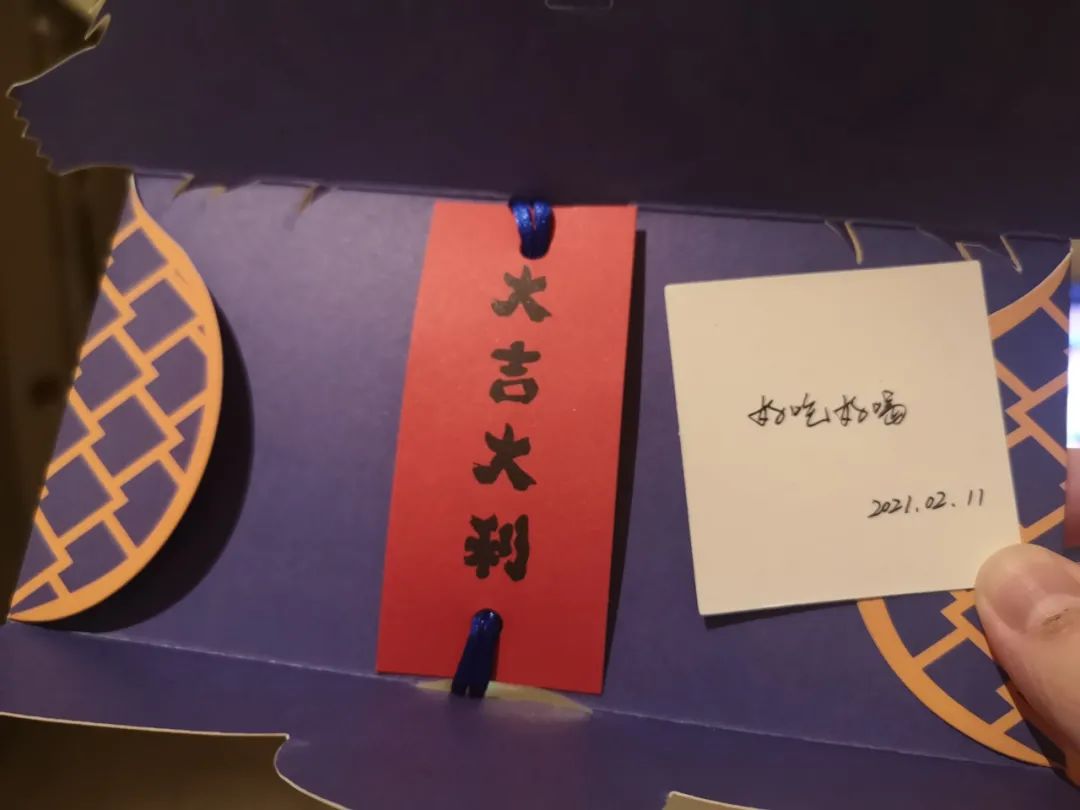 大吉大利
好吃好喝
2021.02.11